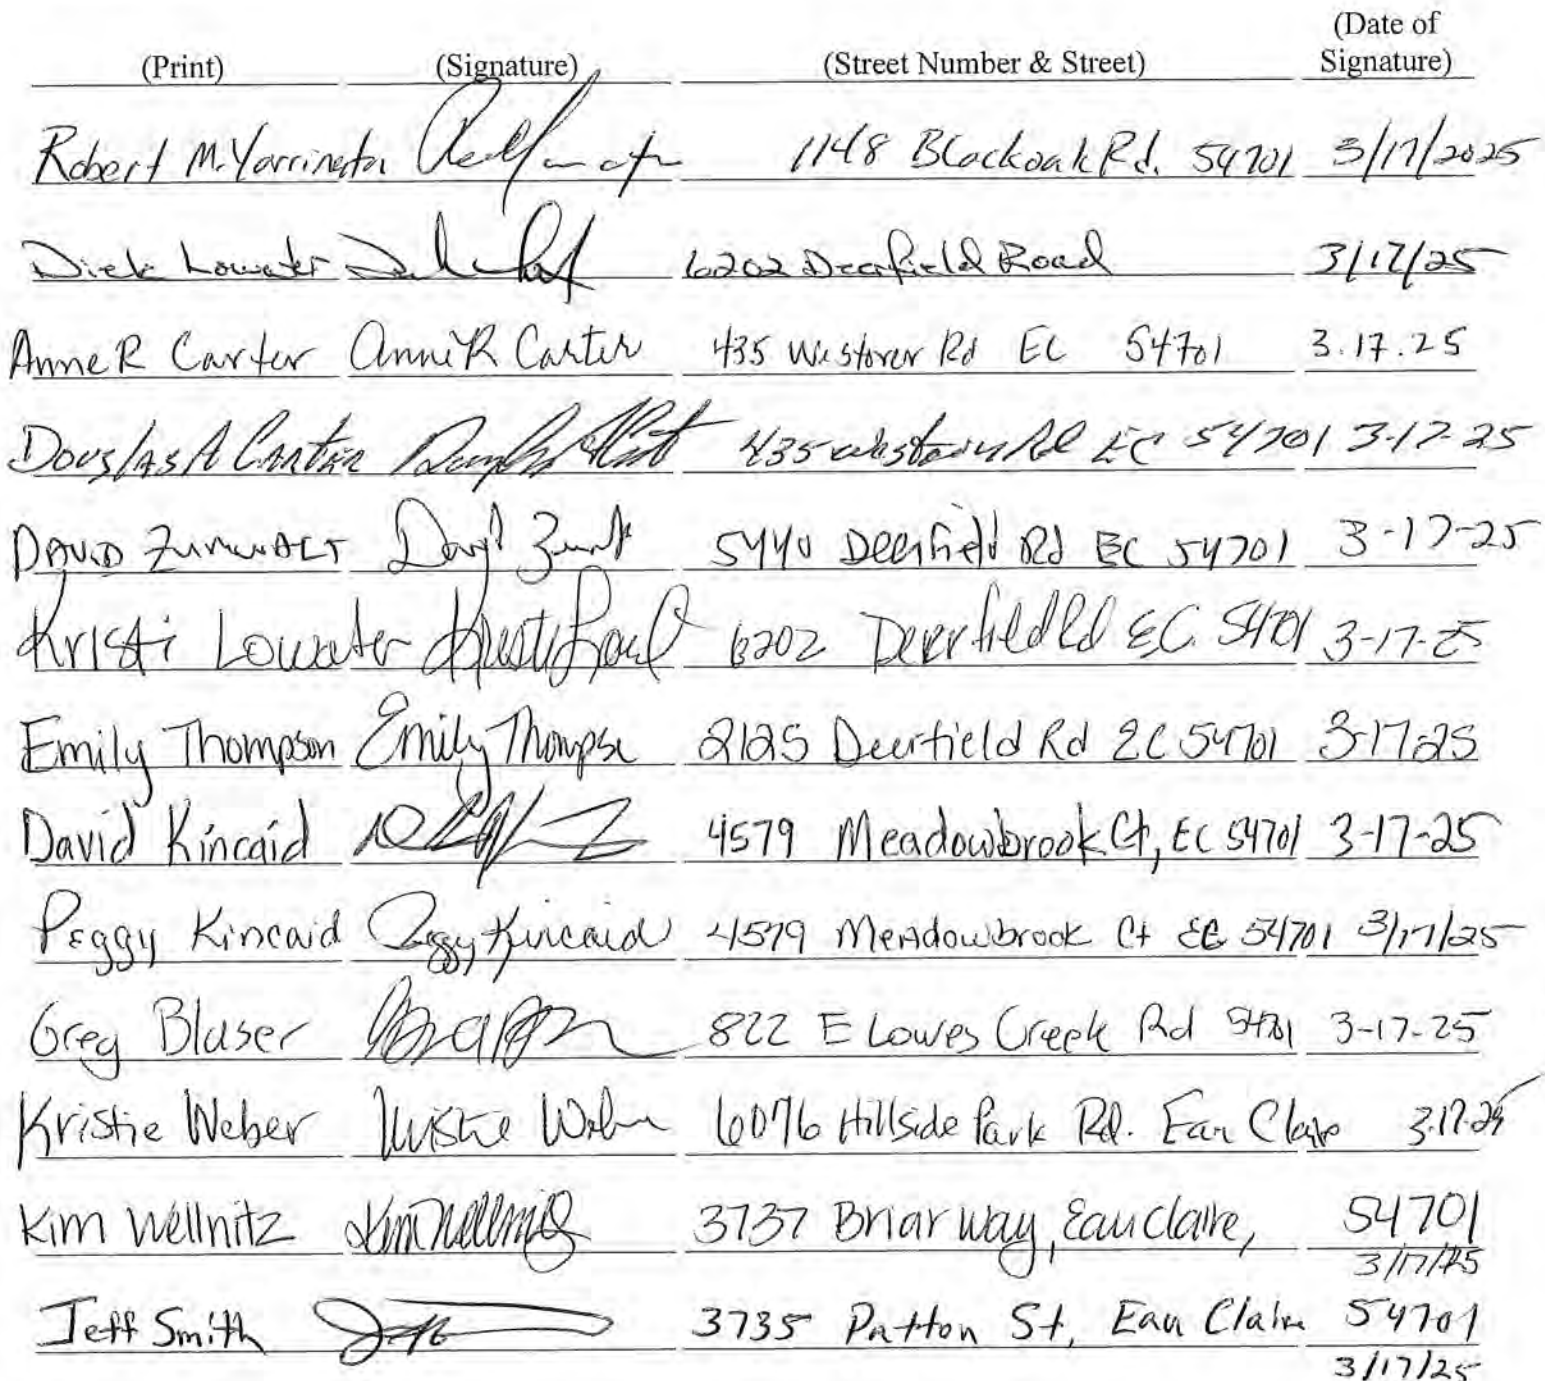 (Print) (Signature) (Street Number & Street) (Date of Signature)
Robert M. Yarrington 1148 Blackoak Rd. 54701 3/17/2025
Dick Lowater 6202 Deerfield Road 3/17/25
Anne R Carter Anne R Carter 435 Westover Rd EC 54701 3.17.25
Douglas A Carter 435 Westover Rd EC 54701 3-17-25
DAVID ZUMWALT 5440 Deerfield Rd EC 54701 3-17-25
Kristi Lowater 6202 Deerfield Rd E.C. 54701 3-17-25
Emily Thompson Emily Thompso 2125 Deerfield Rd EC 54701 3-17-25
David Kincaid 4579 Meadowbrook Ct, EC 54701 3-17-25
Peggy Kincaid Peggy Kincaid 4579 Meadowbrook Ct EC 54701 3/17/25
Greg Blaser 822 E Lowes Creek Rd 54701 3-17-25
Kristie Weber Kristie Weber 6076 Hillside Park Rd. Eau Claire 3.17.25
Kim Wellnitz Kim Wellnitz 3737 Briar Way, Eau Claire, 54701
3/17/25
Jeff Smith 3735 Patton St, Eau Claire 54701
3/17/25